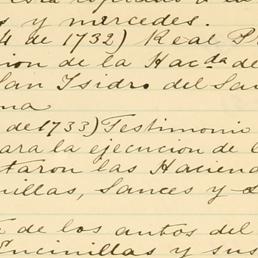 y mercedes.
4 de 1732) Real P
ion de la Hacda de
San Isidro del Sau
na
de 1733) Testimonio
ara la ejecucion de l
taron las Hacien
nillas, Sauces y
de los autos del
Encinillas y sus